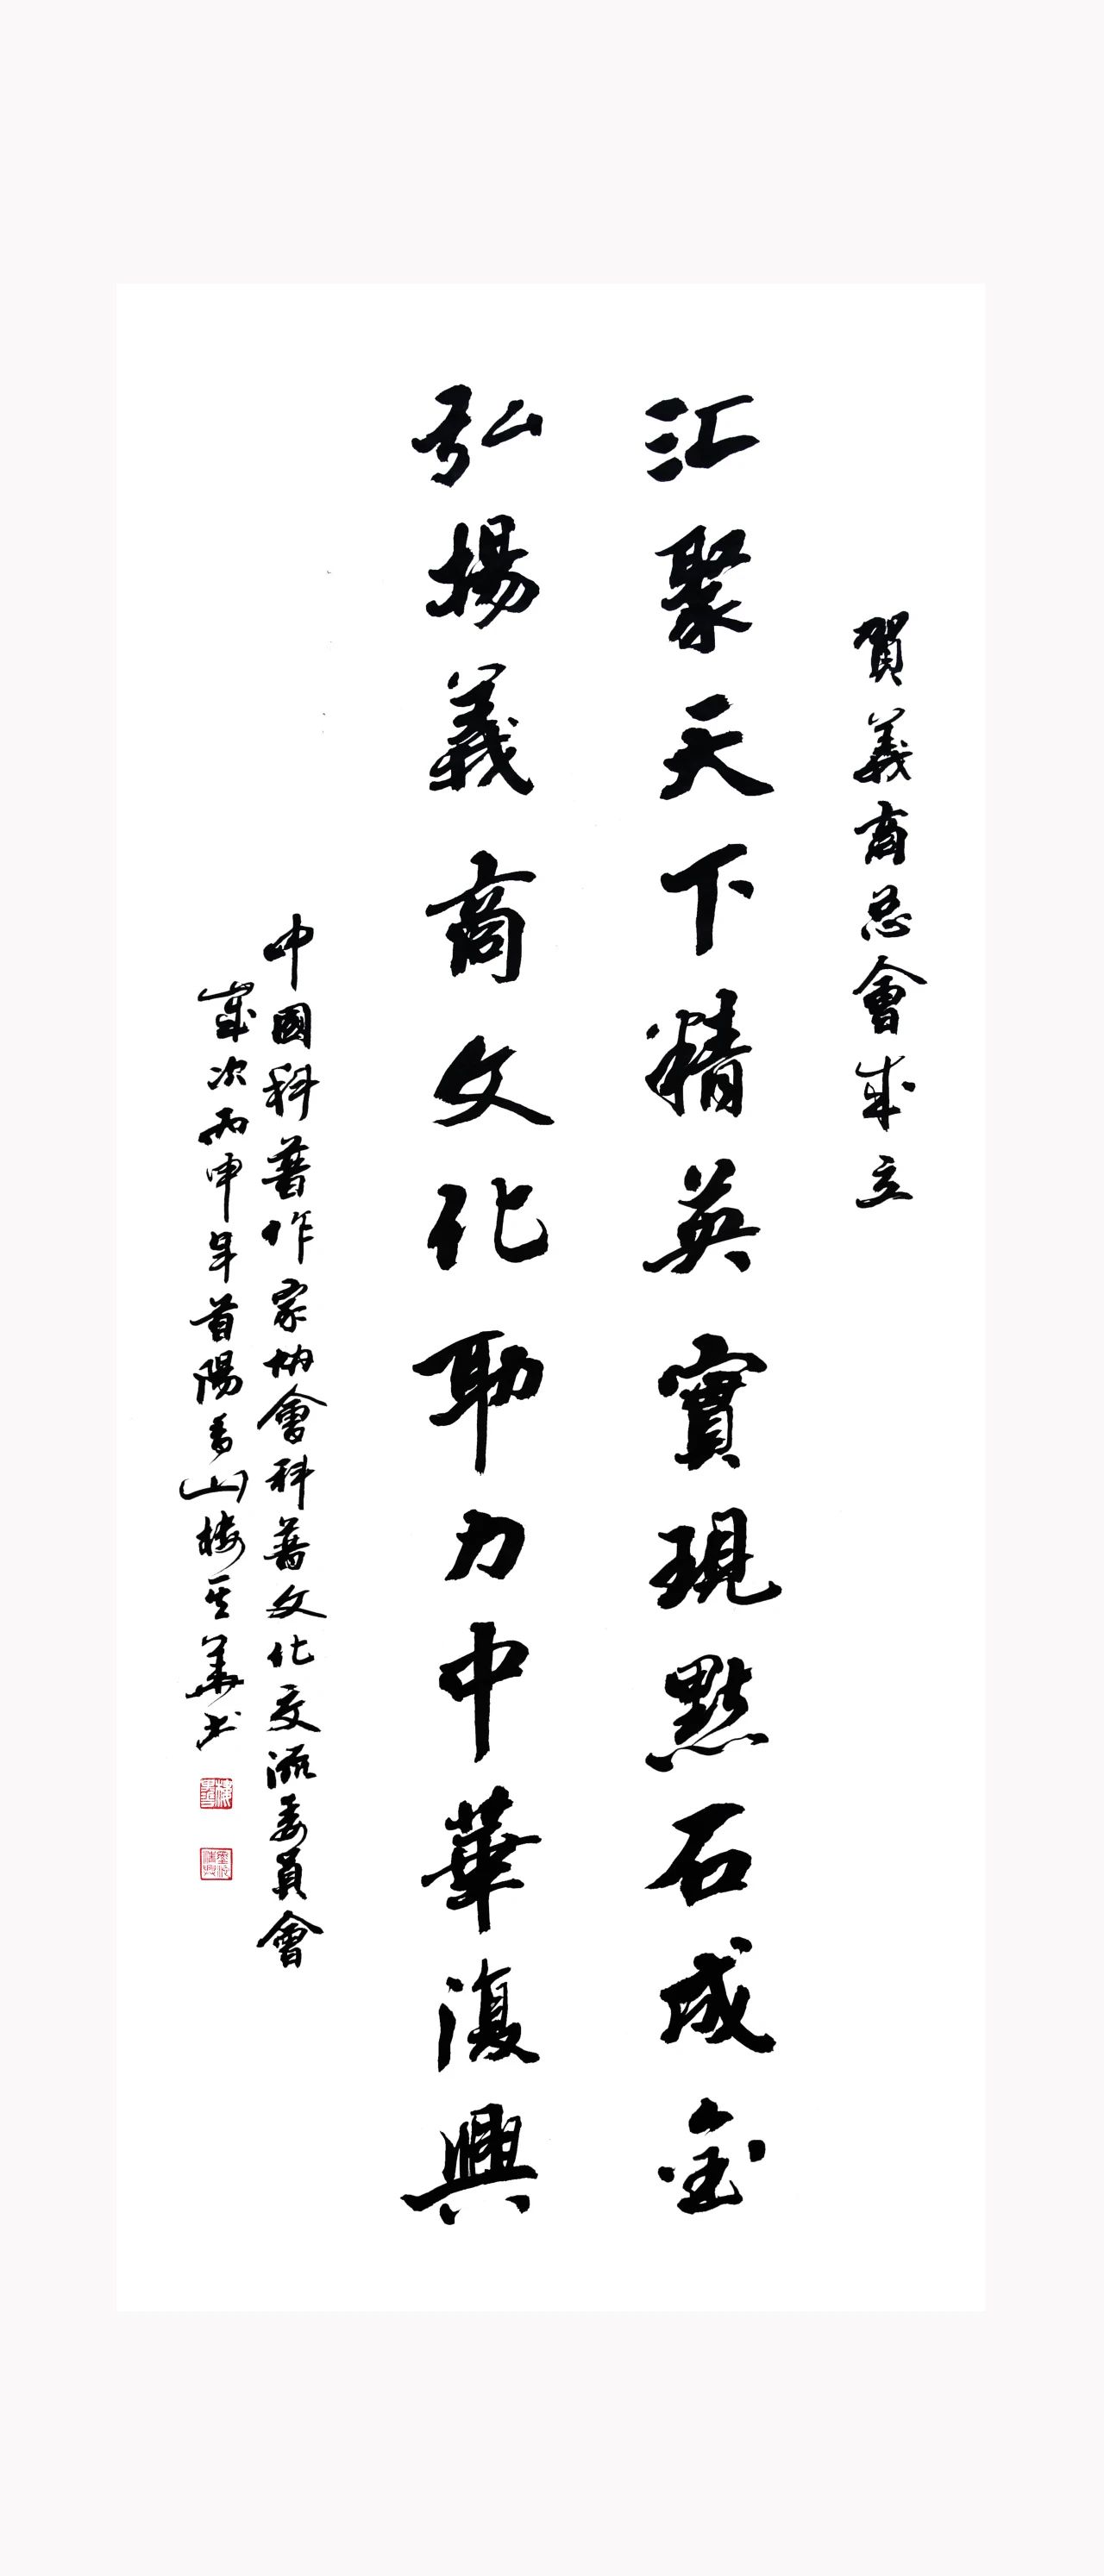 賀義商总會成立
汇聚天下精英實現點石成金
弘揚義商文化助力中華復興
中國科普作家協會科普文化交流委員會
歲次丙申年首陽香山樓 華书